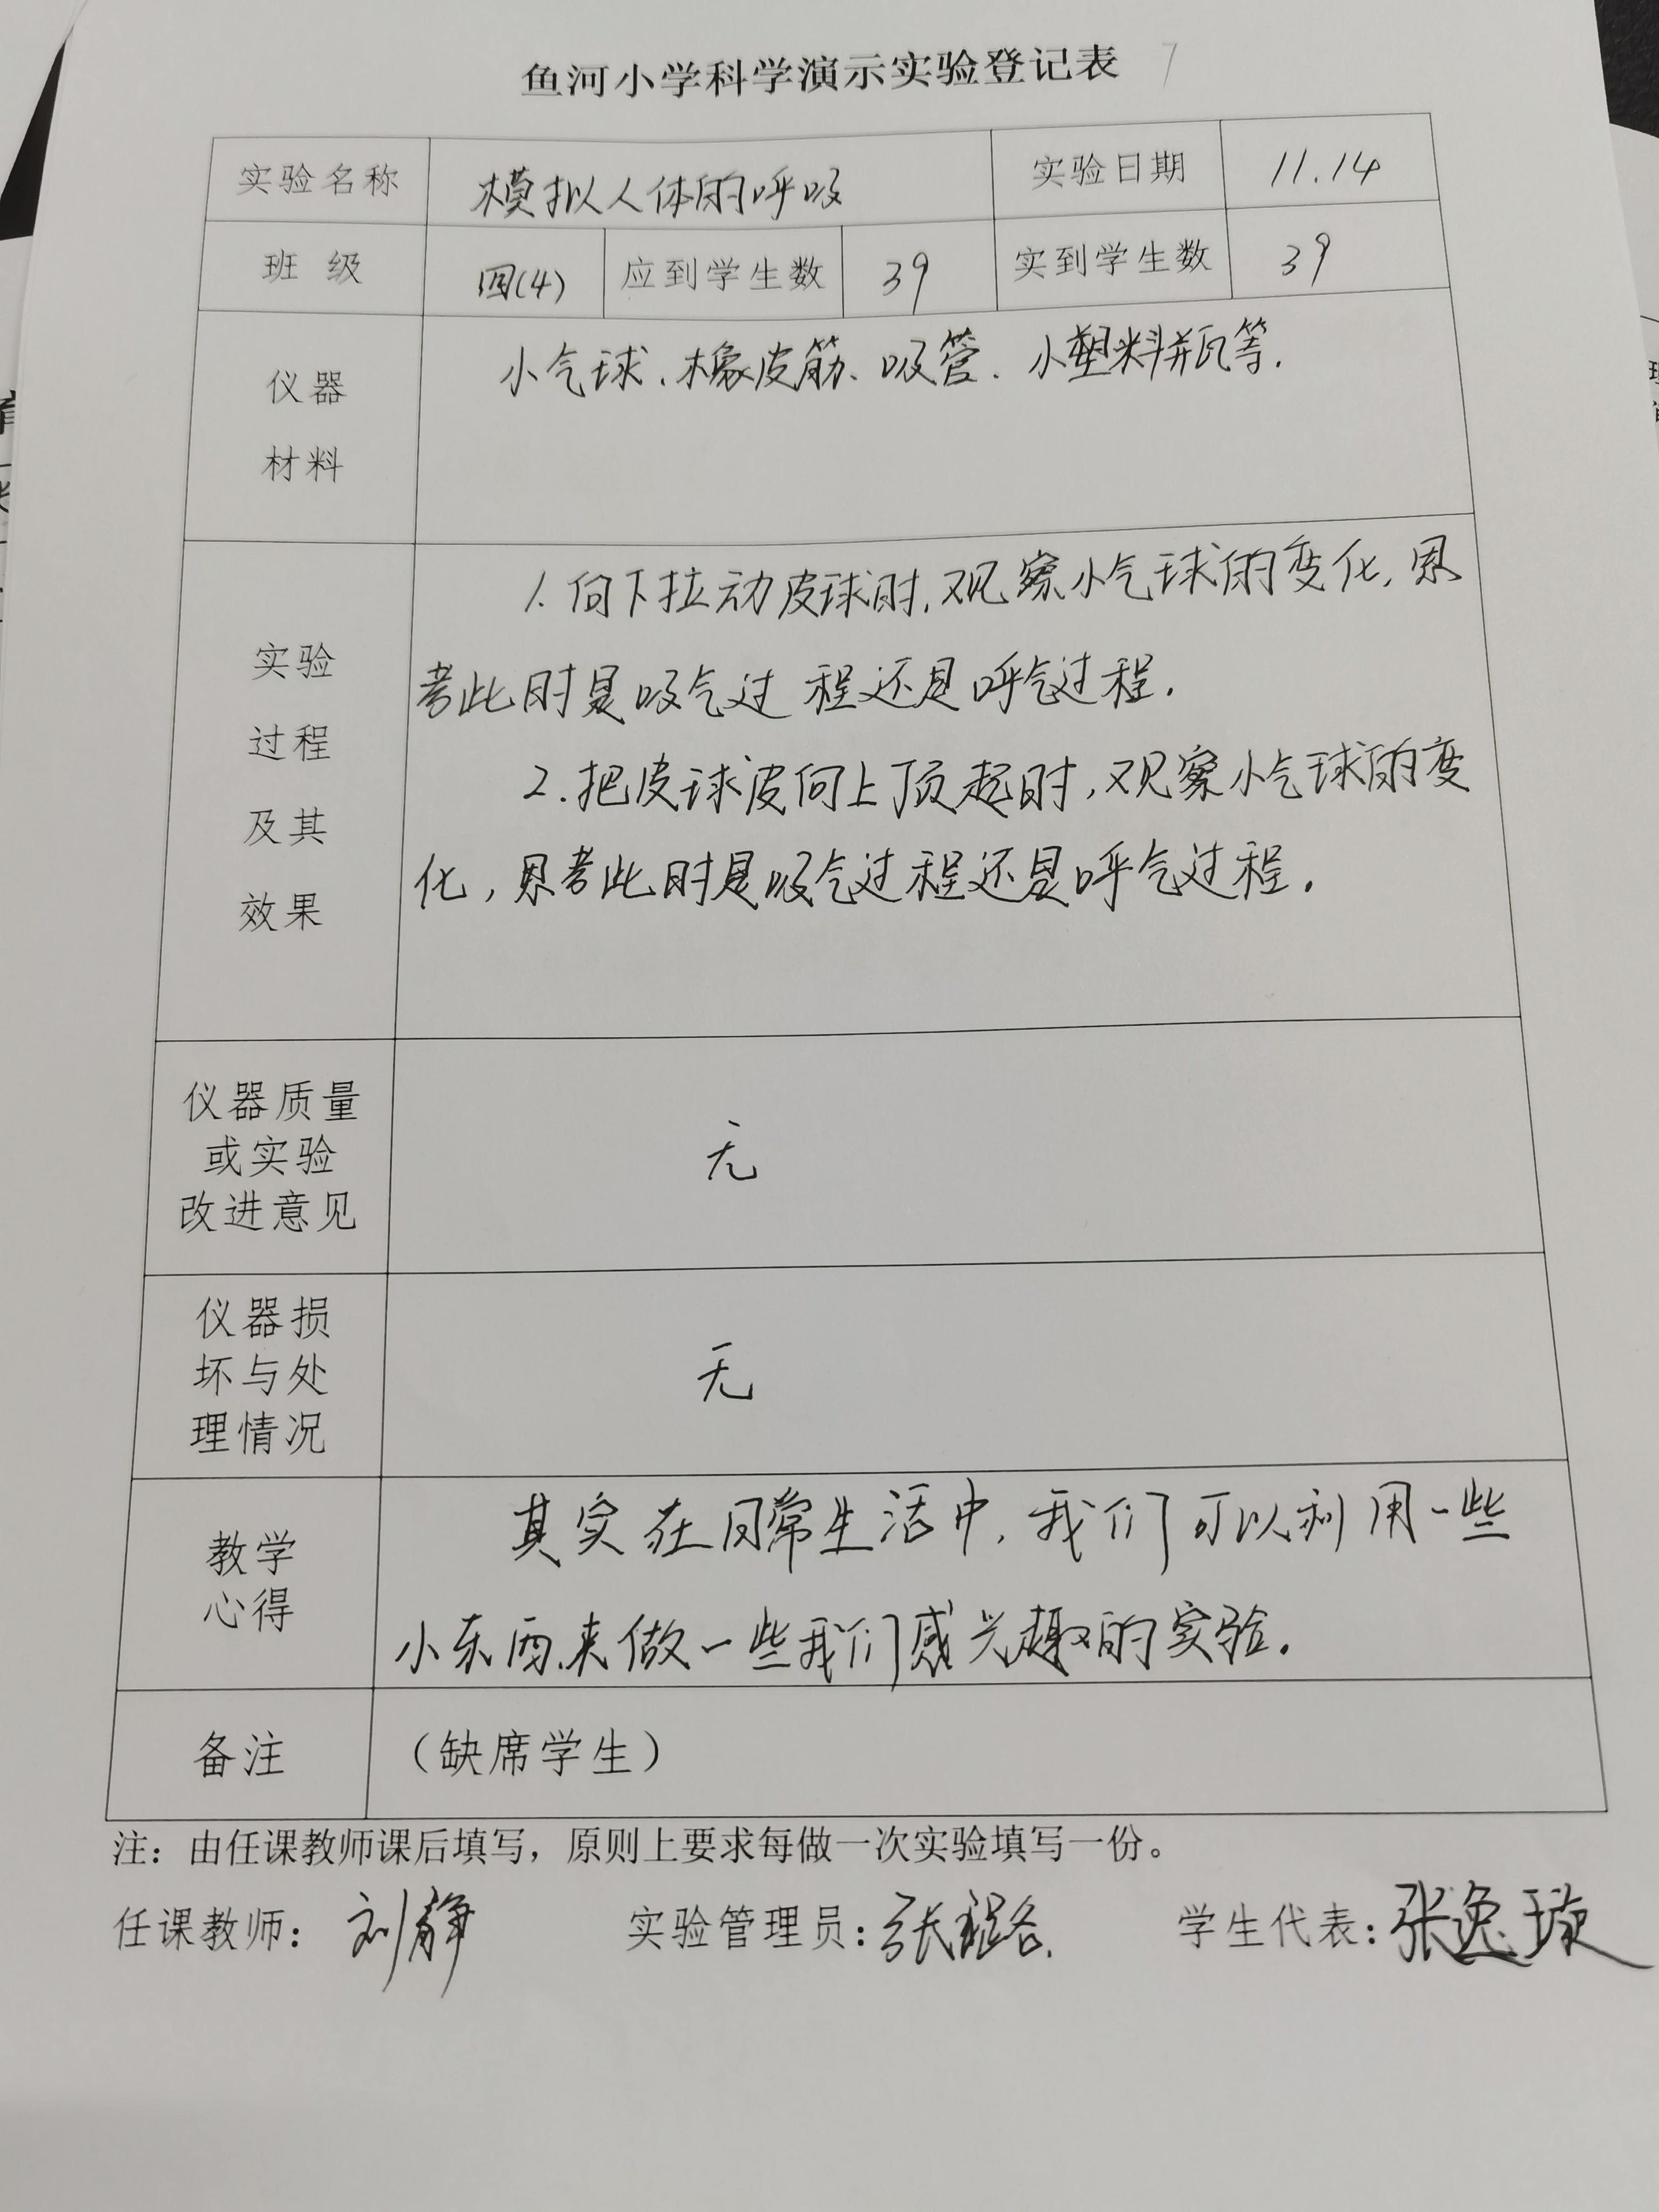 鱼河小学科学演示实验登记表 7
实验名称 模拟人体的呼吸 实验日期 11.14
班 级 四(4) 应到学生数 39 实到学生数 39
仪器
材料
小气球、橡皮筋、吸管、小塑料瓶等.
实验
过程
及其
效果
1. 向下拉动皮球时,观察小气球的变化,思
考此时是吸气过程还是呼气过程.
2.把皮球皮向上顶起时,观察小气球的变
化,思考此时是吸气过程还是呼气过程.
仪器质量
或实验
改进意见
无
仪器损
坏与处
理情况
无
教学
心得
其实在日常生活中,我们可以利用一些
小东西来做一些我们感兴趣的实验.
备注 (缺席学生)
注：由任课教师课后填写，原则上要求每做一次实验填写一份。
任课教师：刘静 实验管理员：张 学生代表：张逸璇